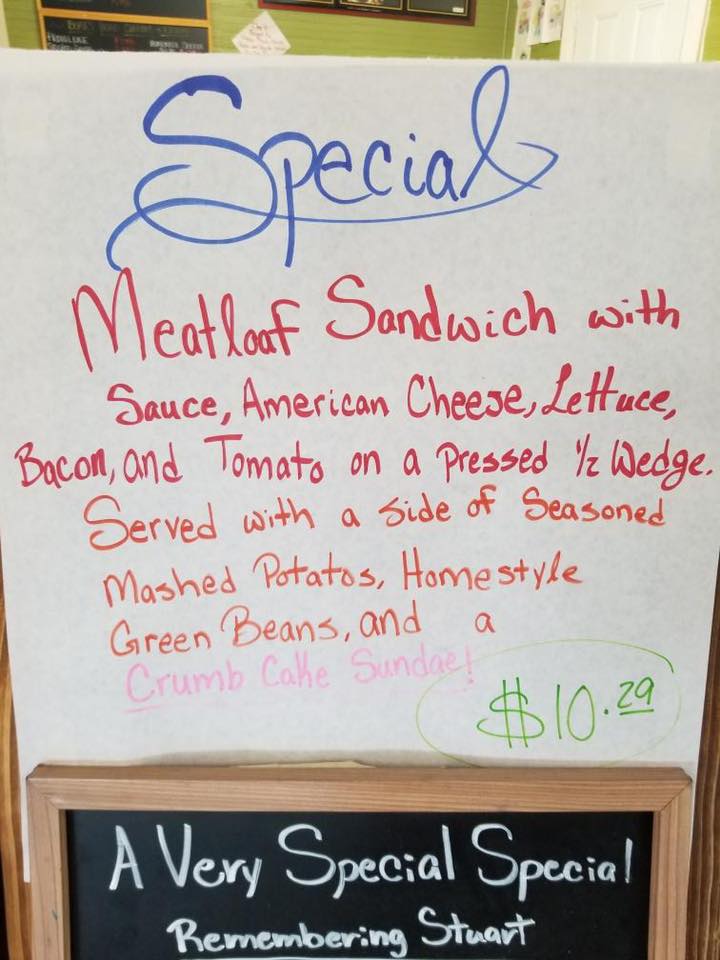 Special
Meatloaf Sandwich with
Sauce, American Cheese, Lettuce,
Bacon, and Tomato on a Pressed 1/2 Wedge.
Served with a side of Seasoned
Mashed Potatos, Homestyle
Green Beans, and a
Crumb Cake Sundae!
$10.29
A Very Special Special
Remembering Stuart